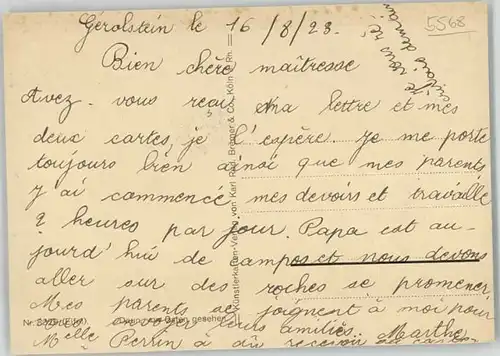 Gérolstein le 16/8/23.
5568
Bien chère maîtresse
Avez-vous reçu ma lettre et mes
deux cartes, je l'espère. Je me porte
toujours bien ainsi que mes parents
J'ai commencé mes devoirs et travaille
2 heures par jour. Papa est au-
jourd'hui de campos et nous devons
aller sur des roches se promener
Mes parents se joignent à moi pour
leurs amitiés. Marthe
Melle Perrin a dû recevoir
Je vous
Künstlerkarten-Verlag von Karl Rud. Bremer & Co., Köln a. Rh.
gesehen